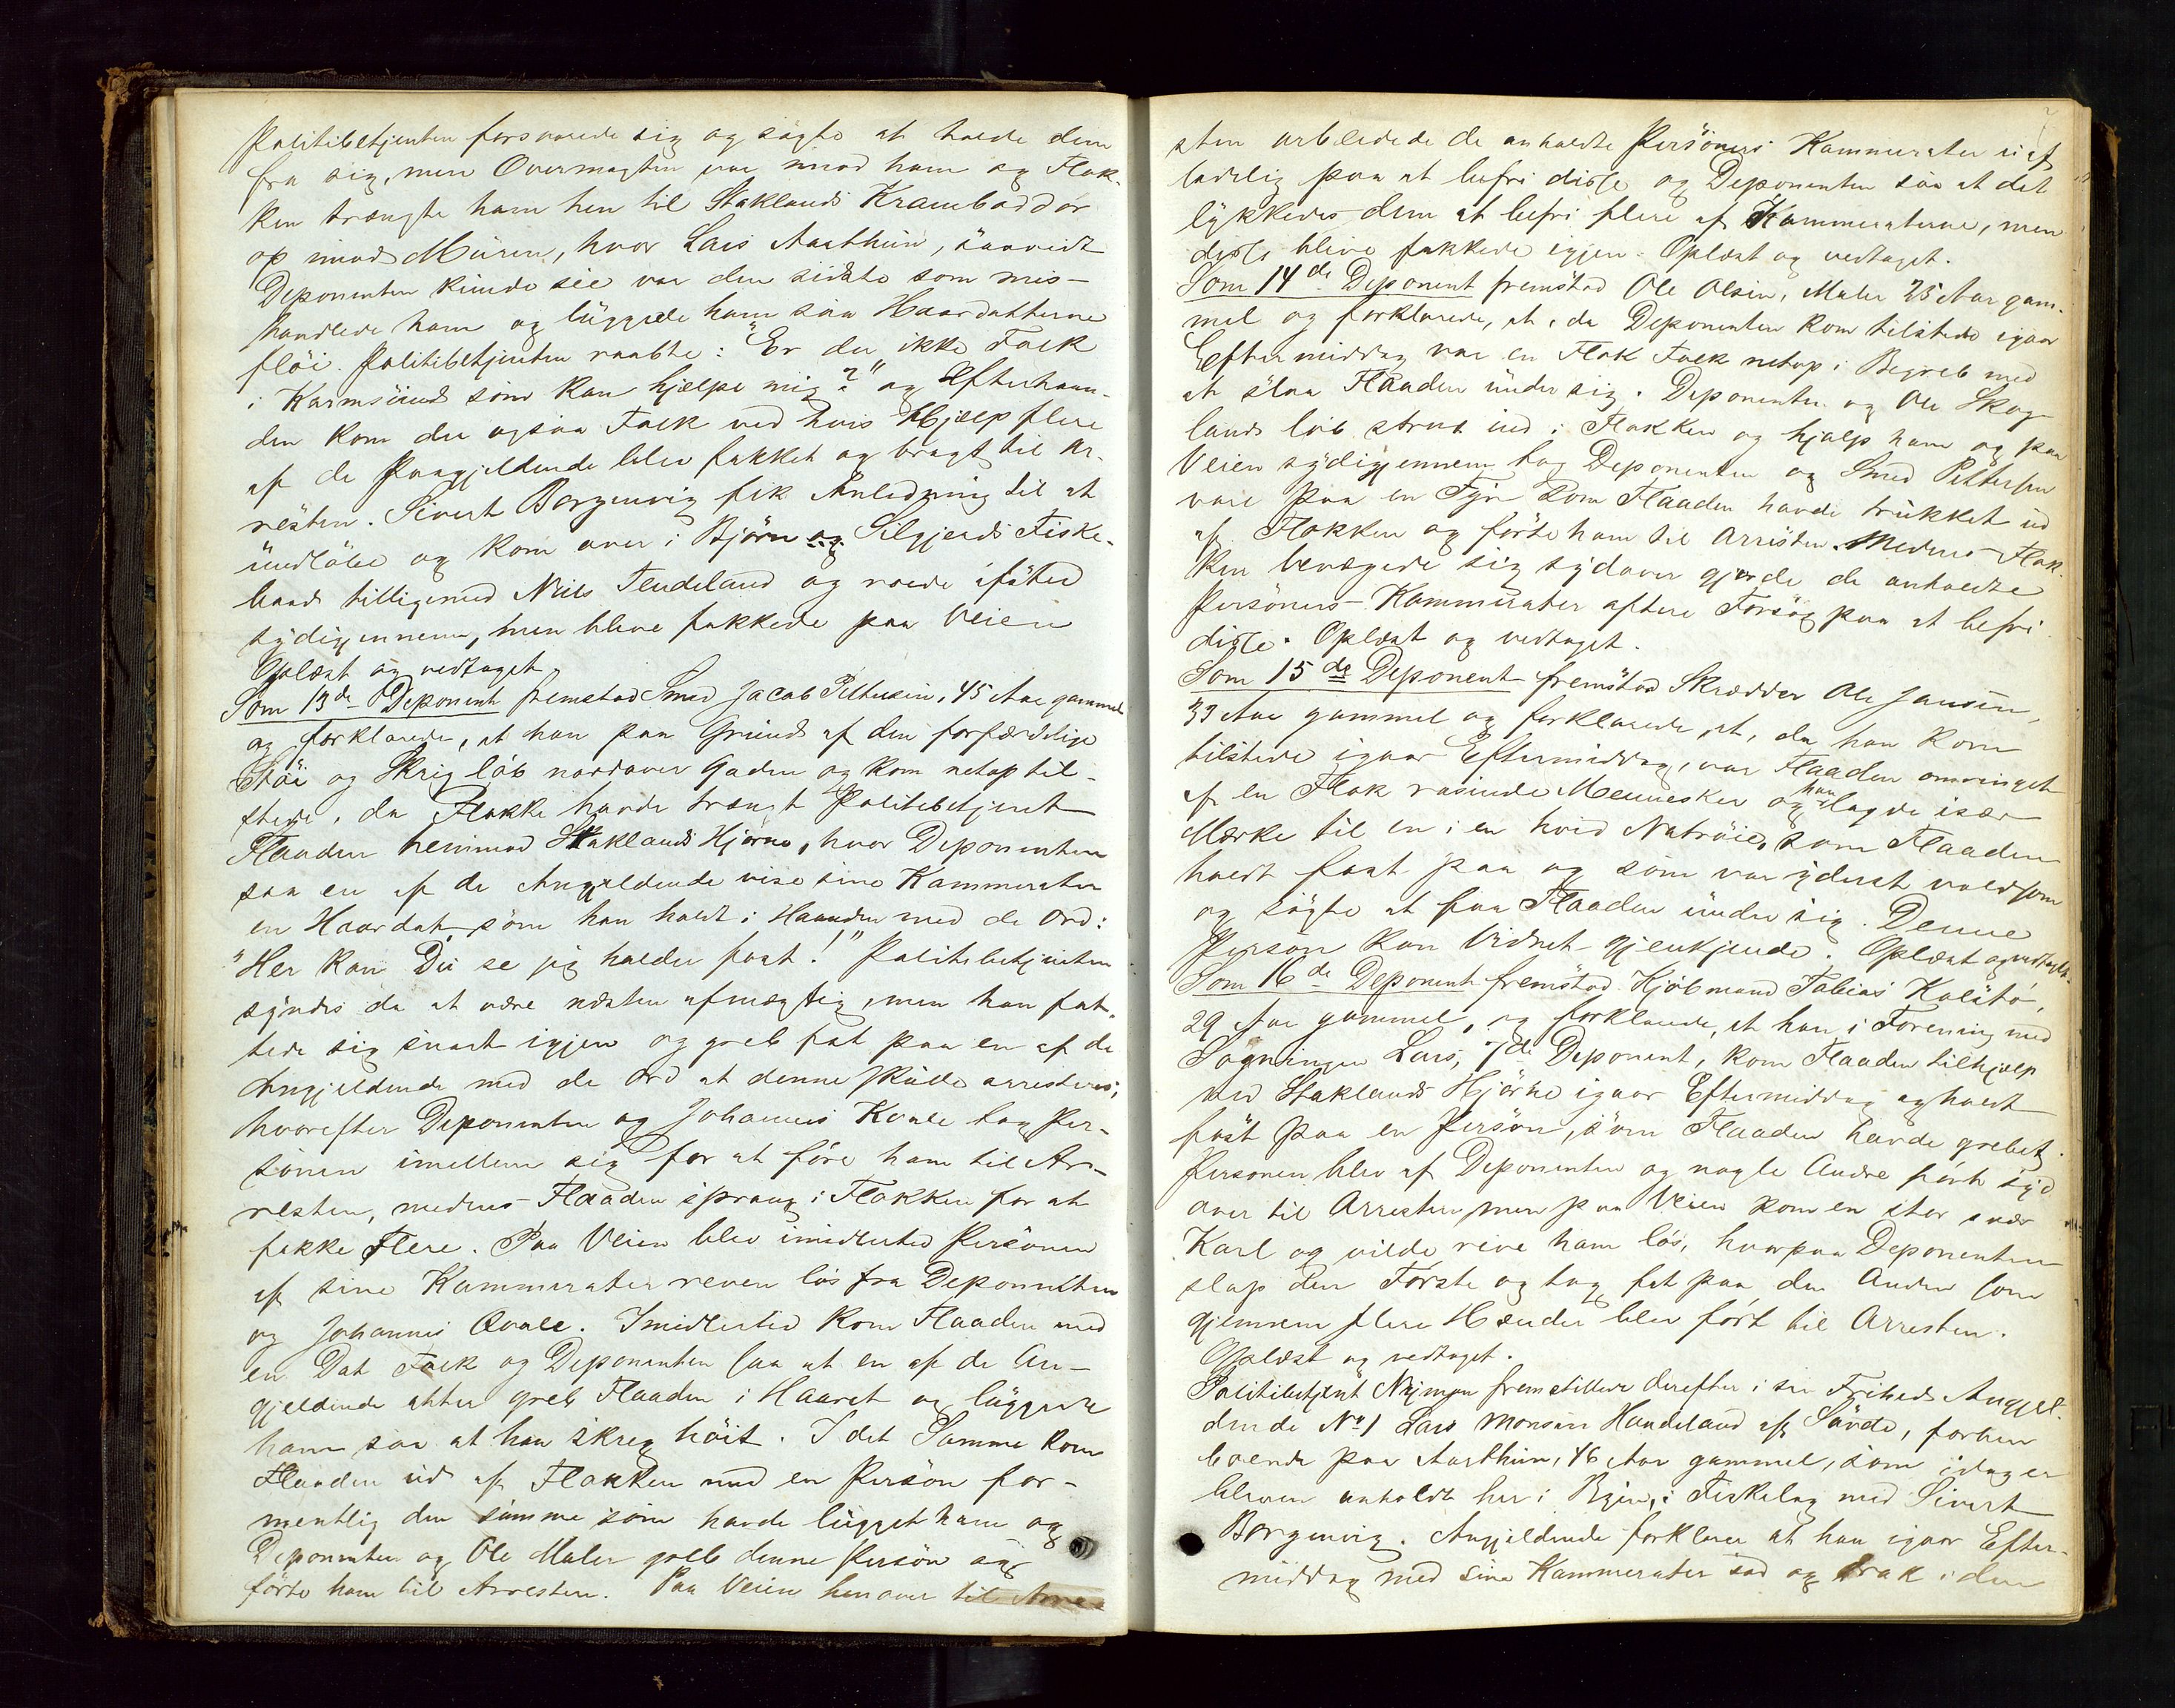 Politibetjenten forsvarede sig og søgte at holde dem
fra sig, men Overmagten var imod ham og Flok-
ken trængte ham hen til Staklands Kramboddør
op imod Muren, hvor Lars Aarthun, saavidt
Deponenten kunde see var den sidste som mis-
handlede ham og luggede ham saa Haardotterne
fløi. Politibetjenten raabte: "Er der ikke Folk
i Karmsund som kan hjælpe mig?" og Efterhaan-
den kom der ogsaa Folk ved hvis Hjælp flere
af de Paagjeldende blev pakket og bragt til Ar-
resten. Sivert Borgenvig fik Anledning til at
undløbe og kom over i Bjørn og Silgjerds Fiske-
baad tilligemed Niels Tendeland og roede afsted
sydigjennem, men bleve pakkede paa Veien
Oplæst og vedtaget.
Som 13de Deponent fremstod Smed Jacob Pettersen, 45 Aar gammel
og forklarede, at han paa Grund af den forfærdelige
Støi og Skrig løb nordover Gaden og kom netop til-
stede, da Flokke havde trængt Politibetjent
Flaaden henimod Staklands Hjørne, hvor Deponenten
saa en af de Angjeldende vise sine Kammerater
en Haardot som han holdt i Haanden med de Ord:
"Her kan Du se jeg holder fast!" Politibetjenten
syndes da at være næsten afmægtig, men han fat-
tede sig snart igjen og greb fat paa en af de
Angjeldende med de Ord at denne skulde arresteres;
hvorefter Deponenten og Johannes Kvale tog Per-
sonen imellem sig for at føre ham til Ar-
resten, medens Flaaden sprang i Flokken for at
pakke flere. Paa Veien blev imidlertid Personen
af sine Kammerater reven løs fra Deponenten
og Johannes Qvale. Imidlertid kom Flaaden med
en Dot Folk og Deponenten saa at en af de An-
gjeldende atter greb Flaaden i Haaret og luggede
ham saa at han skreg høit. I det Samme kom
Flaaden ud af Flokken med en Person for-
mentlig den samme som havde lugget ham og
Deponenten og Ole Maler greb denne Person og
førte ham til Arresten. Paa Veien henover til Arre-
sten arbeidede de anholdte Personers Kammerater uaf-
ladelig paa at befri disse og Deponenten saa at det
lykkedes dem at befri flere af Kammeraterne, men
disse bleve pakkede igjen. Oplæst og vedtaget.
Som 14de Deponent fremstod Ole Olsen, Maler 25 Aar gam-
mel og forklarede, at, da Deponenten kom tilstede igaar
Eftermiddag var en Flok Folk netop i Begreb med
at slaa Flaaden under sig. Deponenten og Ole Skog-
lands løb strax ind i Flokken og hjalp ham og paa
Veien sydigjennem tog Deponenten og Smed Pettersen
vare paa en Fyr som Flaaden havde trukket ud
af Flokken og førte ham til Arresten. Medens Flok-
ken bevægede sig sydover gjorde de anholdte
Personers Kammerater oftere Forsøg paa at befri
disse. Oplæst og vedtaget.
Som 15de Deponent fremstod Skrædder Ole Jansen,
33 Aar gammel og forklarede, at, da han kom
tilstede igaar Eftermiddag, var Flaaden omringet
af en Flok rasende Mennesker og han lagde især
Mærke til en i en hvid Nattrøie, som Flaaden
holdt fast paa og som var yderst voldsom
og søgte at faa Flaaden under sig. Denne
Person kan Vidnet gjenkjende. Oplæst og vedtaget.
Som 16de Deponent fremstod Kjøbmand Tobias Kalstø,
29 Aar gammel, og forklarede, at han i Forening med
Sogningen Lars, 7de Deponent, kom Flaaden tilhjælp
ved Staklands Hjørne igaar Eftermiddag og holdt
fast paa en Person, som Flaaden havde grebet.
Personen blev af Deponenten og nogle Andre ført syd
over til Arresten, men paa Veien kom en stor svær
Karl og vilde rive ham løs, hvorpaa Deponenten
slap den Første og tog fat paa den Anden som
gjennem flere Hænder blev ført til Arresten.
Oplæst og vedtaget.
Politibetjent Nyman fremstillede derefter i sin Frihed Angjel-
dende No 1 Lars Monsen Handeland af Søvde, forhen
boende paa Aarthun, 46 Aar gammel, som idag er
bleven anholdt her i Byen, i Fiskelag med Sivert
Borgenvig. Angjeldende forklarer at han igaar Efter-
middag med sine Kammerater sad og drak i den